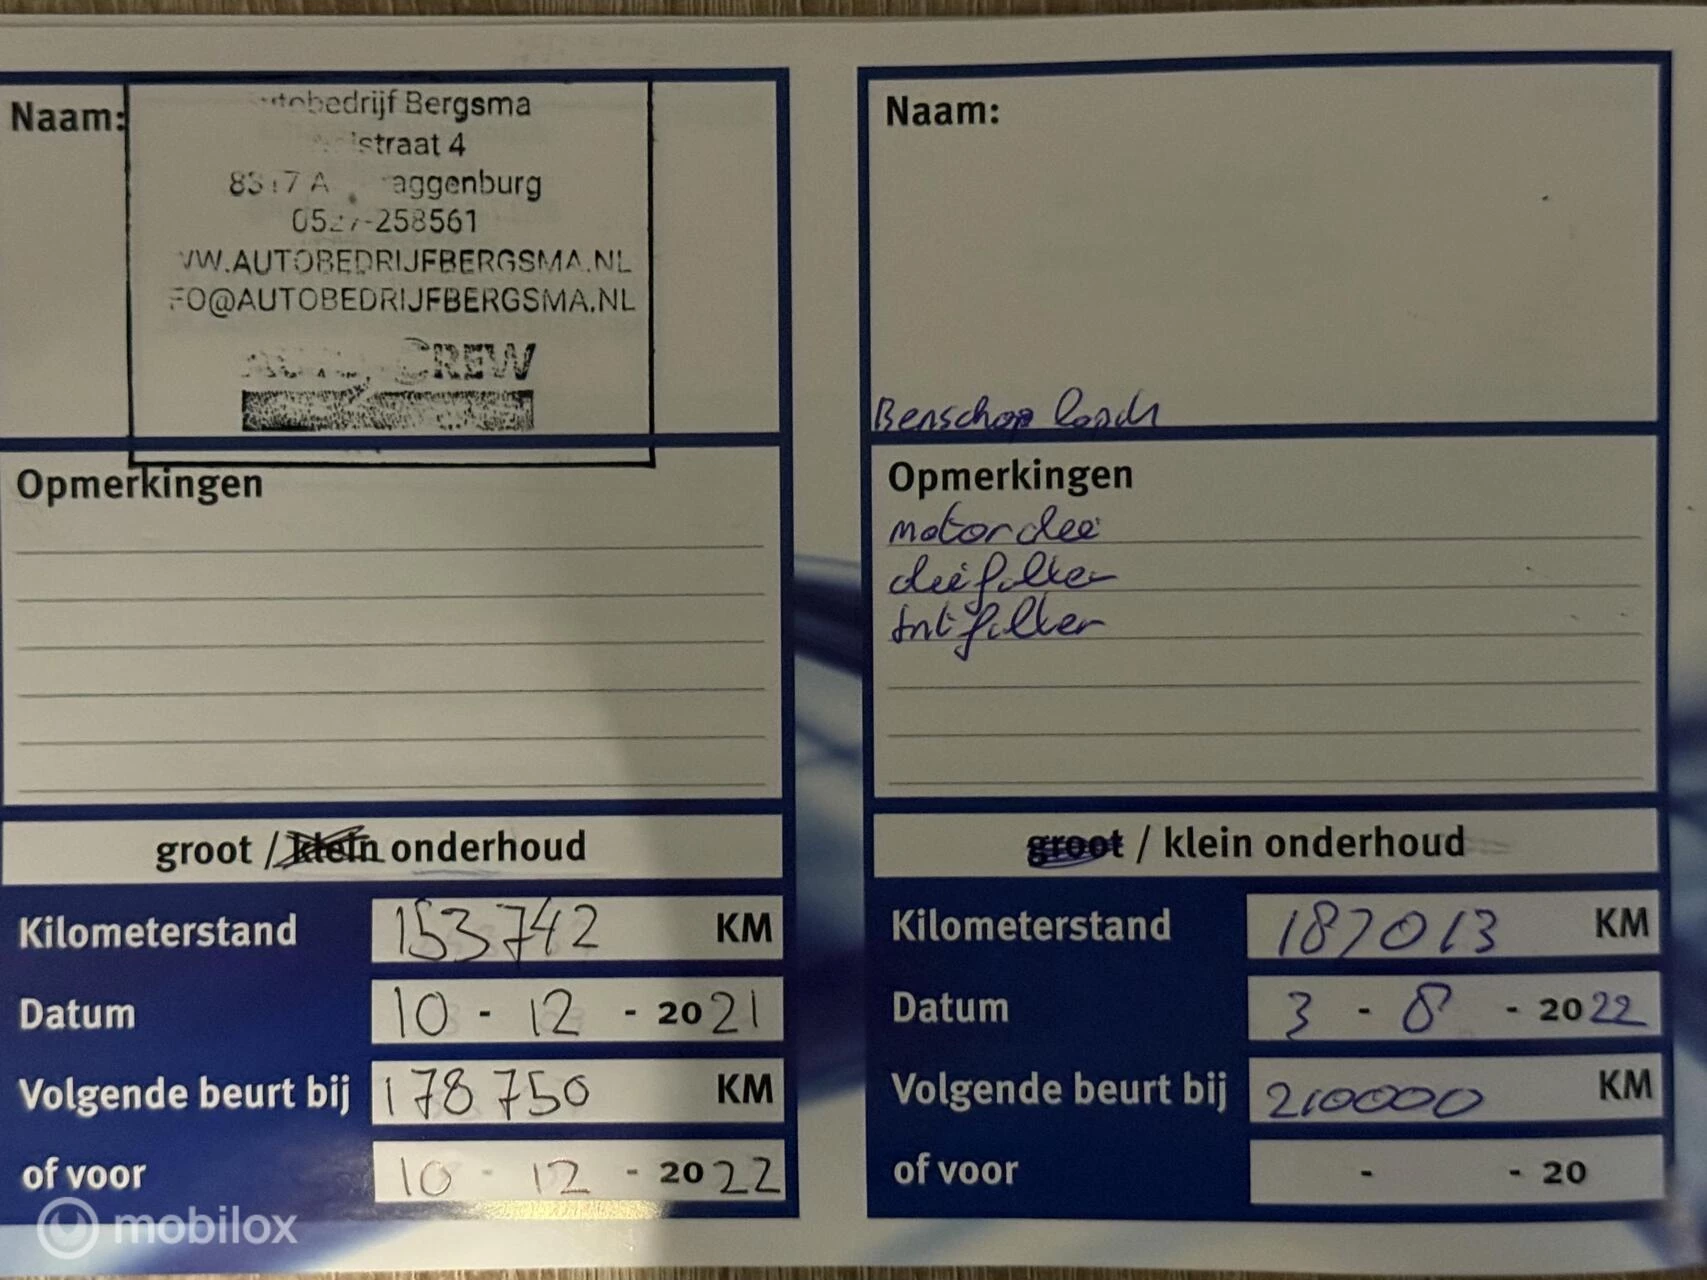 Naam:
tobedrijf Bergsma
straat 4
8317 A aggenburg
0527-258561
WW.AUTOBEDRIJFBERGSMA.NL
FO@AUTOBEDRIJFBERGSMA.NL
AUTO CREW
Opmerkingen
groot / klein onderhoud
Kilometerstand 153742 KM
Datum 10 - 12 - 2021
Volgende beurt bij 178750 KM
of voor 10 - 12 - 2022
Naam:
Benschop
Opmerkingen
motorolee
oliefilter
Intfilter
groot / klein onderhoud
Kilometerstand 187013 KM
Datum 3 - 8 - 2022
Volgende beurt bij 210000 KM
of voor - - 20
mobilox